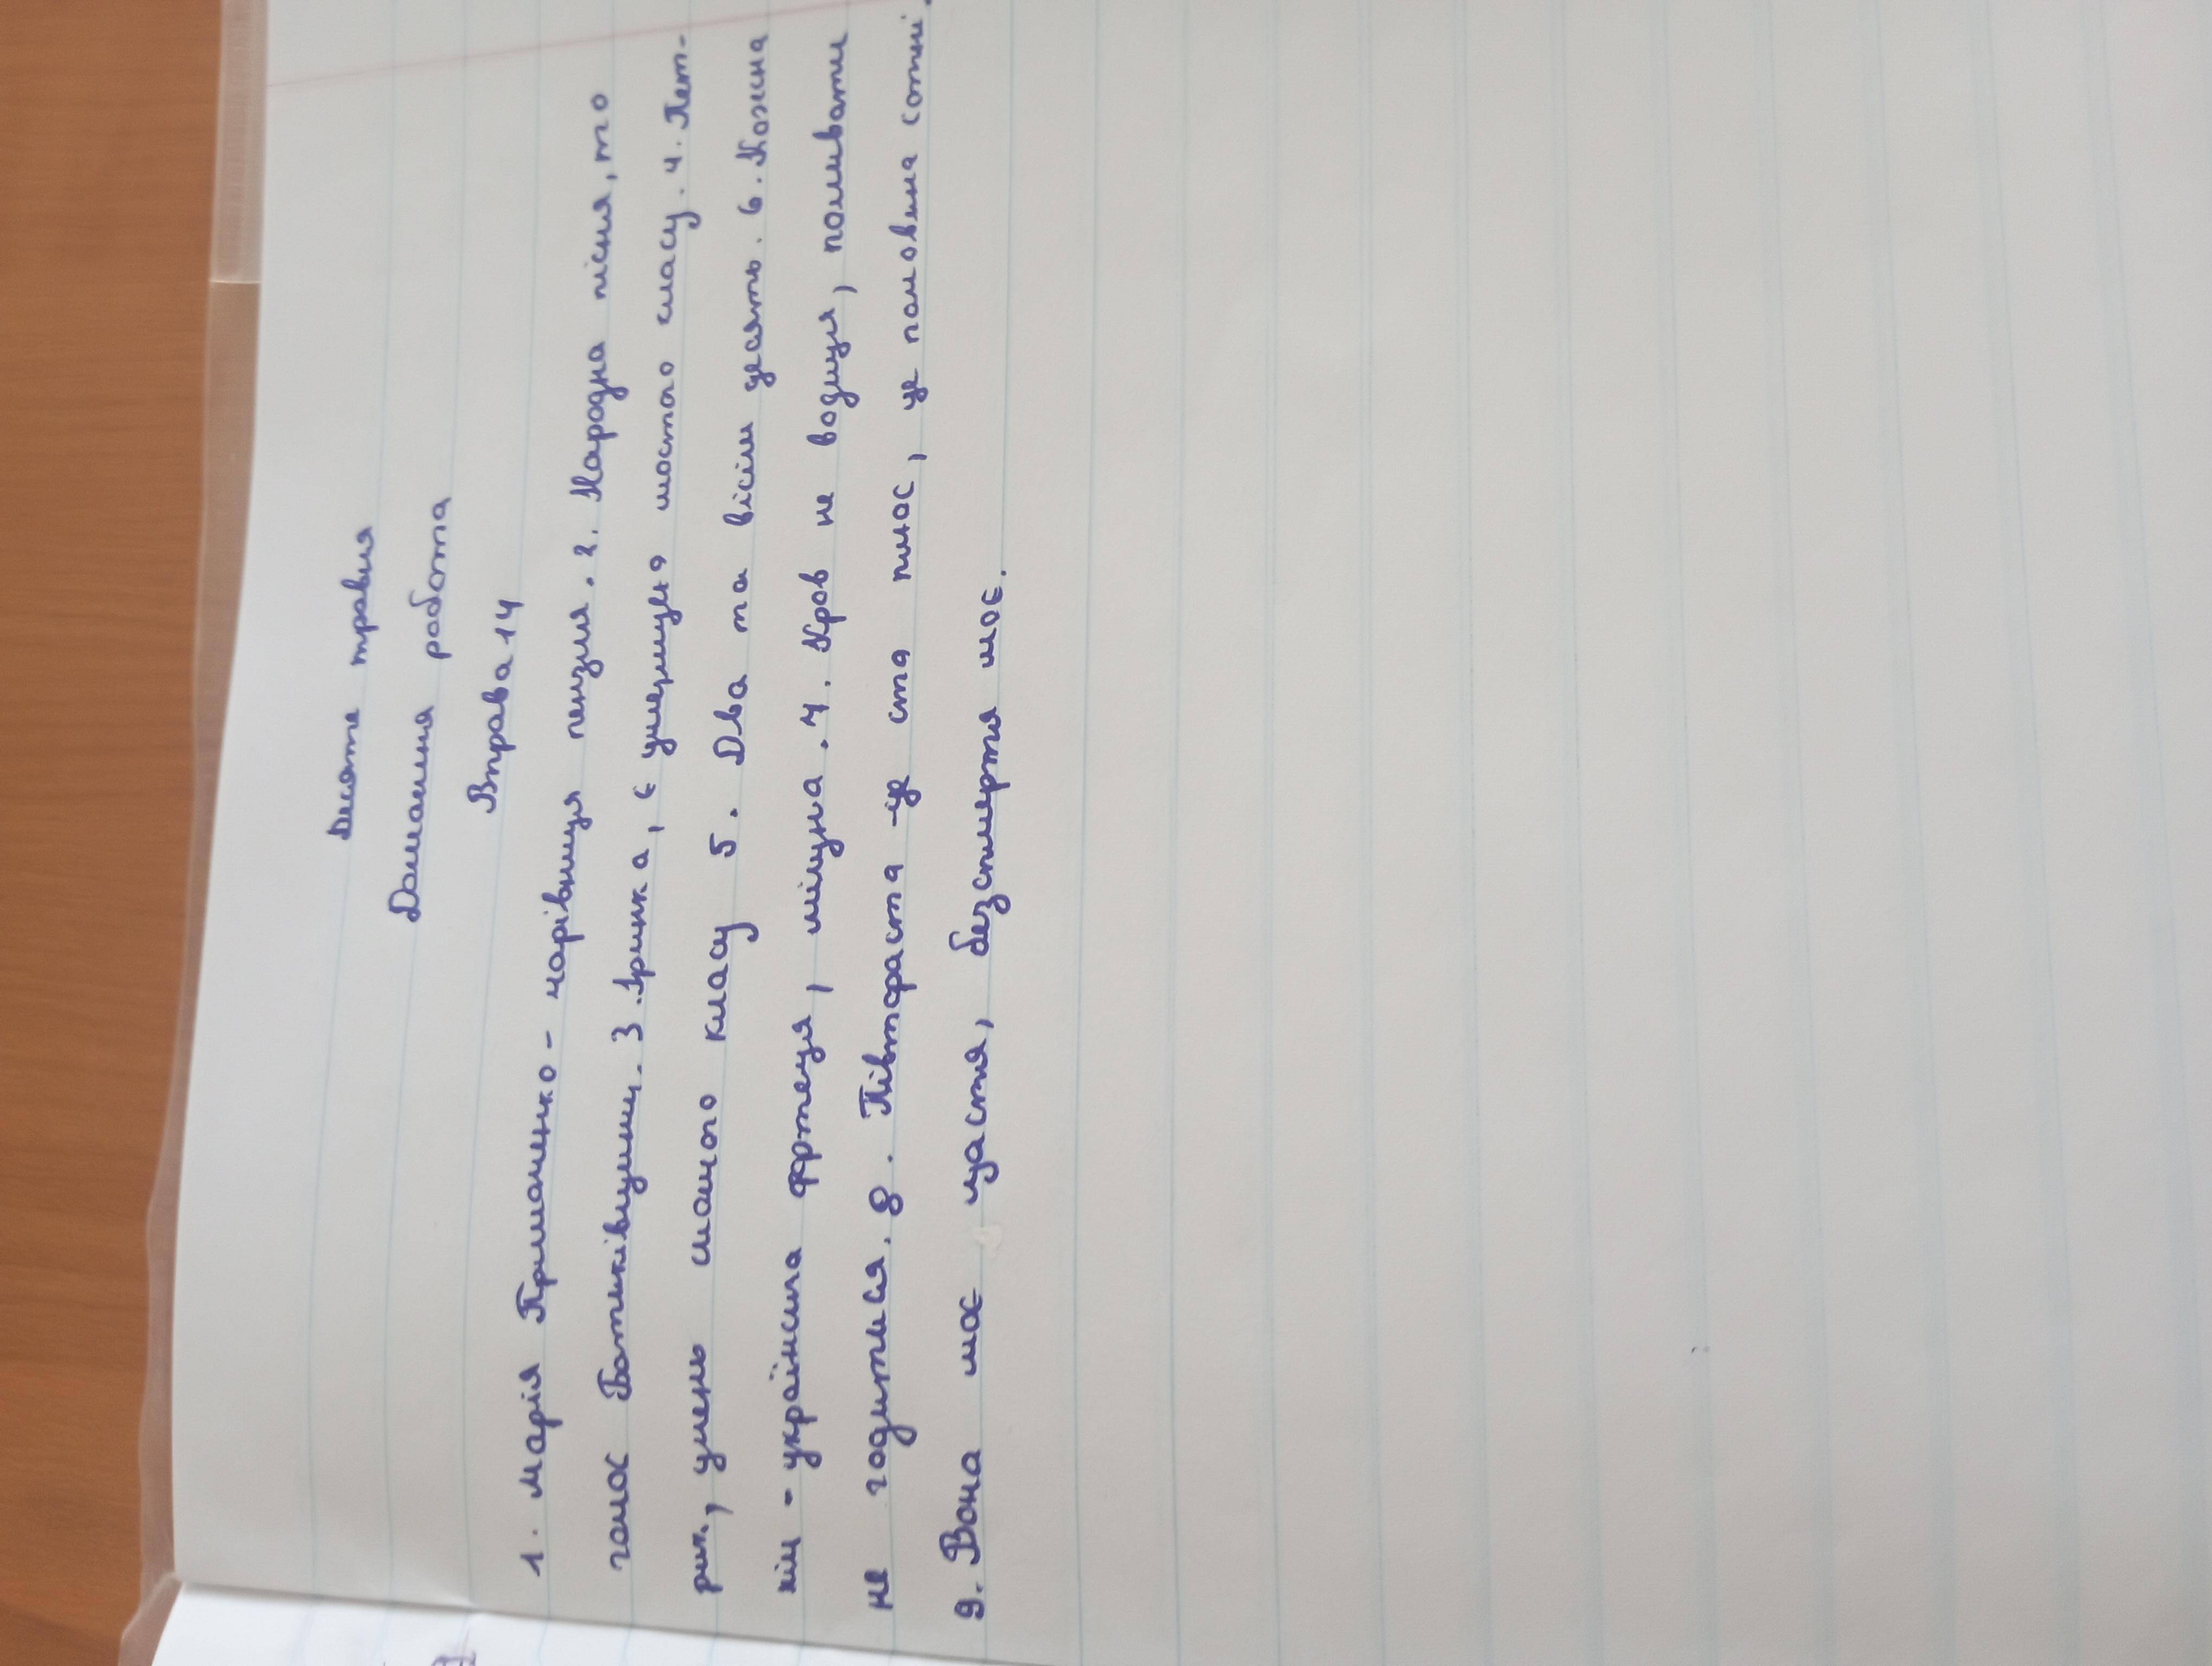 Десяте травня
Домашня робота
Вправа 14
1. Марія Примаченко - чарівниця пензля. 2. Народна пісня, то
голос Батьківщини. 3. Іринка, є учениця шостого класу. 4. Пет-
рик, учень сьомого класу 5. Два та вісім десять. 6. Кожна
кім - українська фртеця, міцна. 7. Кров не водиця, поливати
не годиться. 8. Півтораста -це ста плюс, це половина сотні.
9. Вона моє щастя, безсмертя моє.